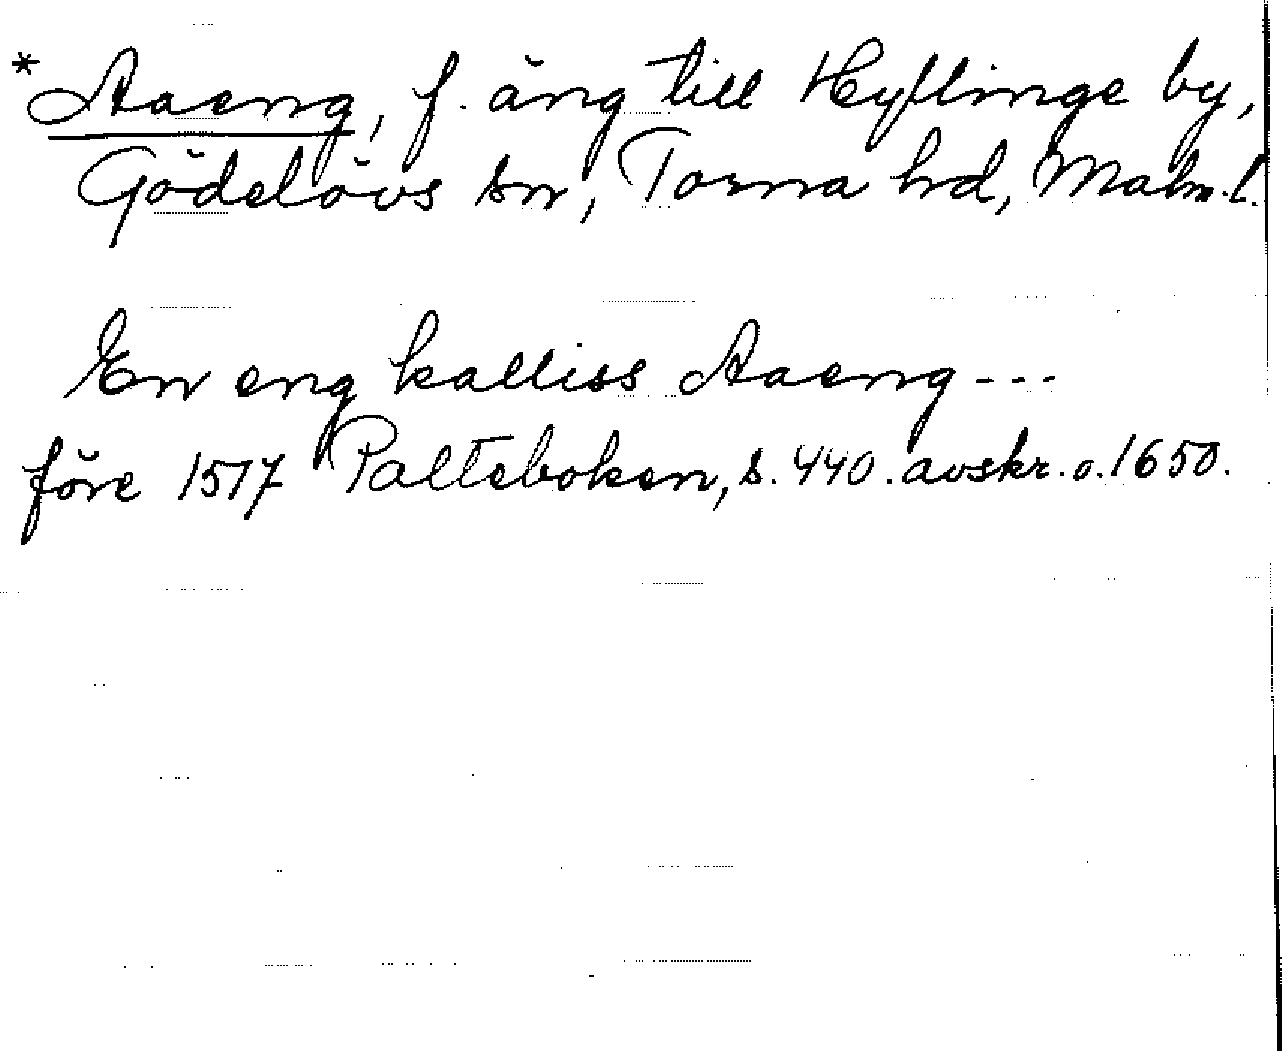 * Aaeng, f. äng till Hyflinge by,
Gödelövs sn, Torna hd, Malm. l.
En eng kalliss Aaeng ---
före 1517 Palteboken, s. 440. avskr. o. 1650.